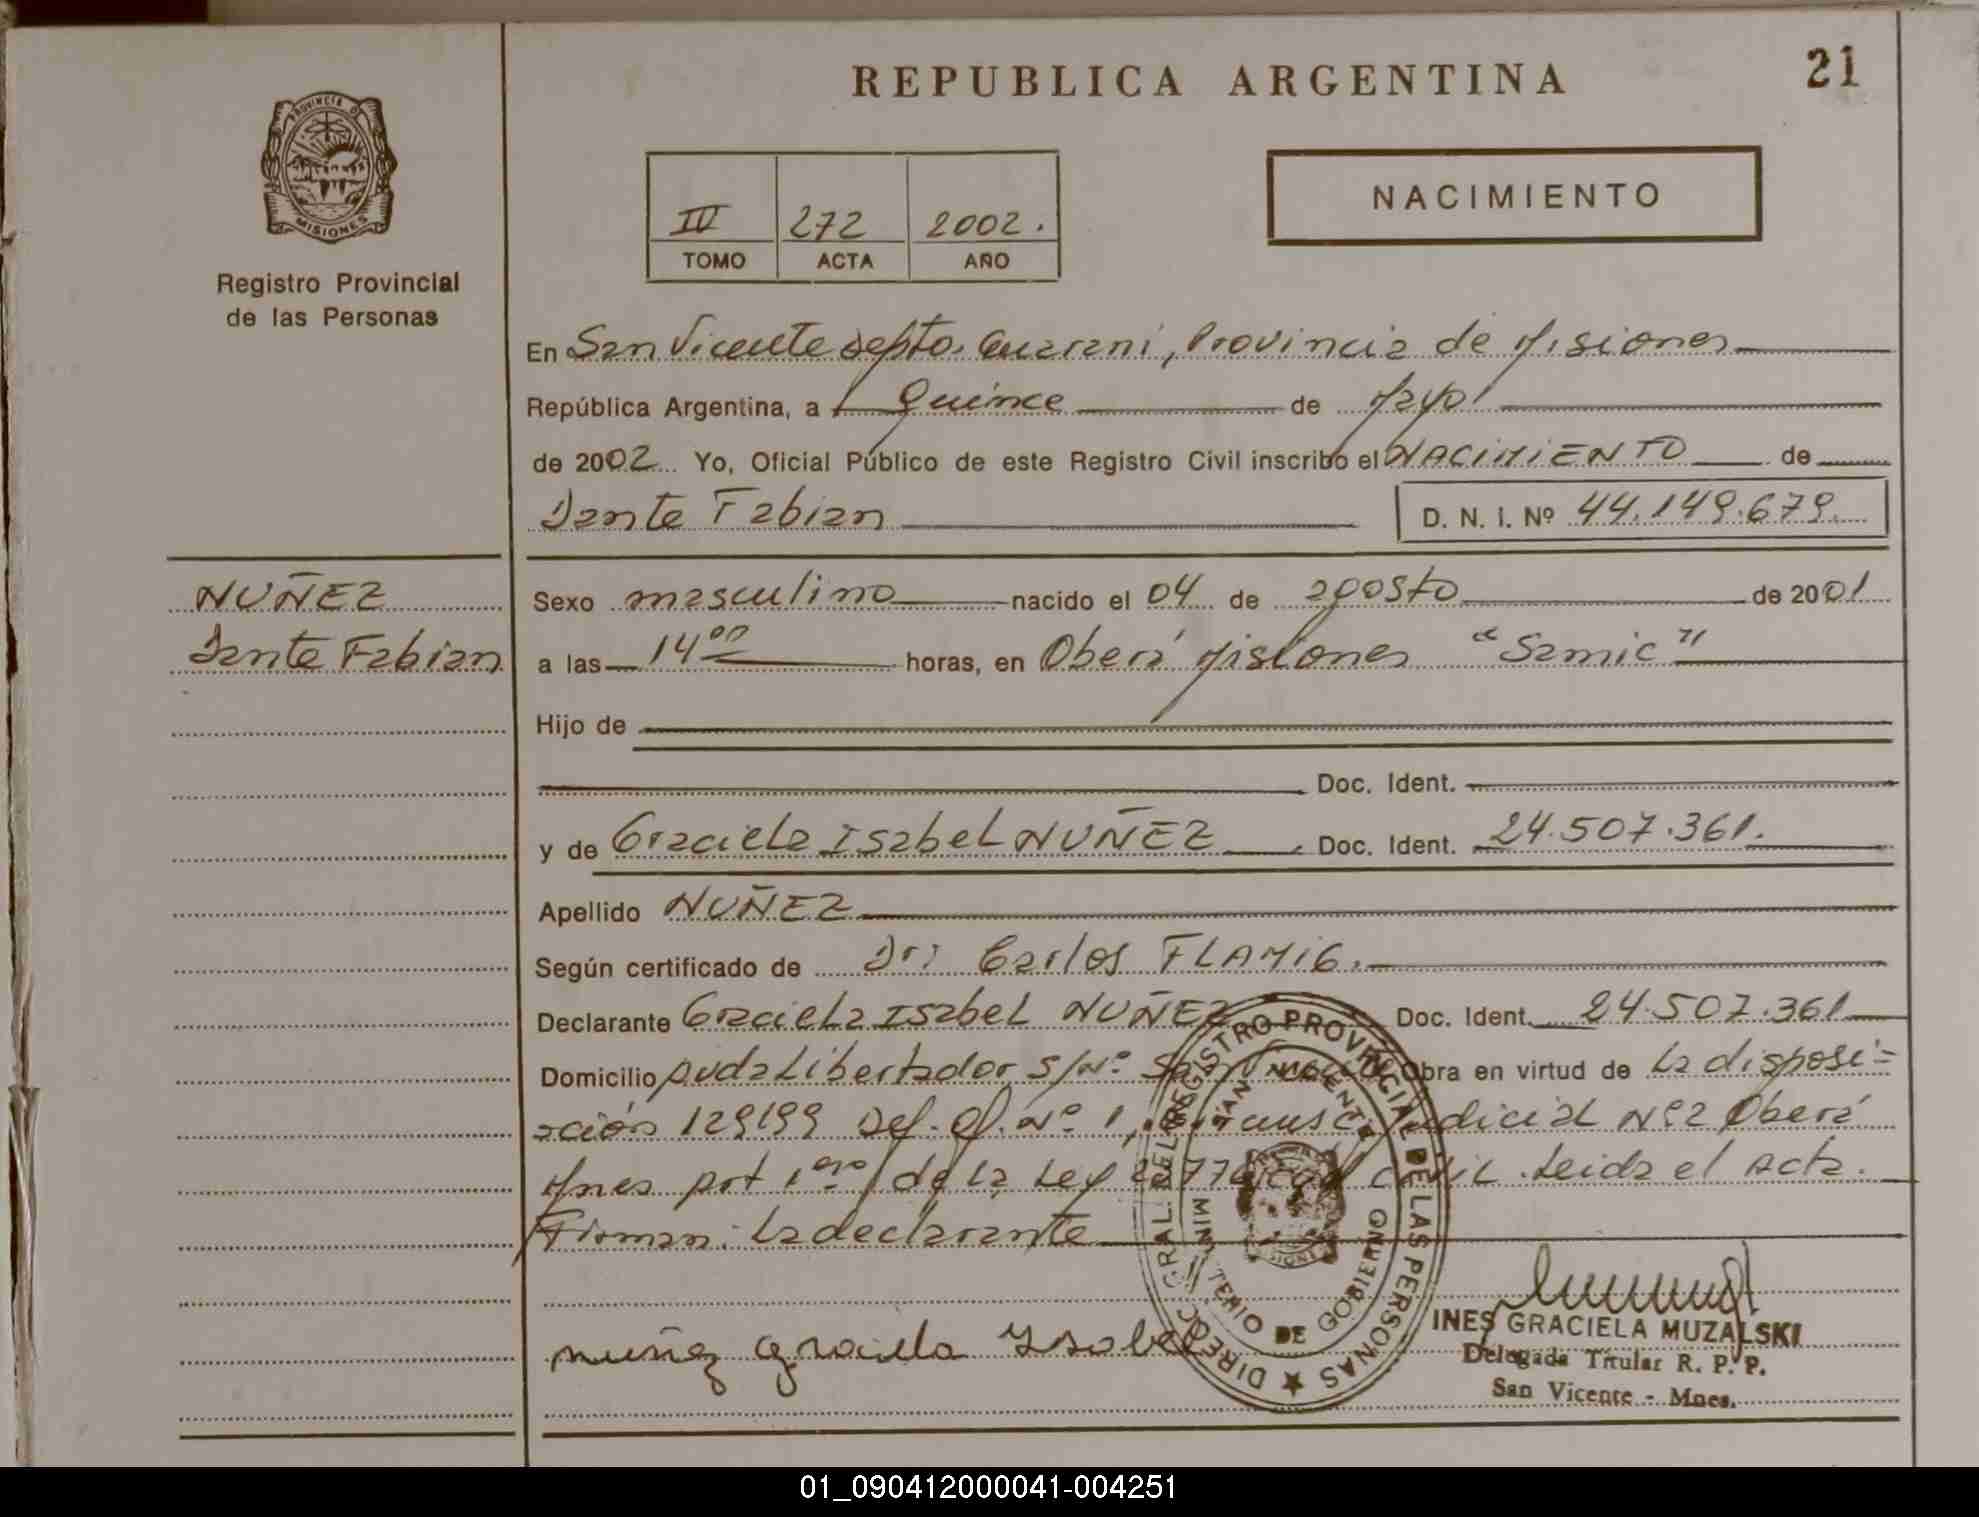 REPUBLICA ARGENTINA
21
PROVINCIA DE
MISIONES
Registro Provincial
de las Personas
IV 272 2002.
TOMO ACTA AÑO
NACIMIENTO
En San Vicente depto. Guarani, Provincia de Misiones
República Argentina, a Quince de Mayo
de 2002 Yo, Oficial Público de este Registro Civil inscribo el NACIMIENTO de
Dante Fabian D. N. I. Nº 44.149.679.
NUÑEZ
Dante Fabian
Sexo masculino nacido el 04 de agosto de 2001
a las 14ºº horas, en Oberá Misiones "Samic"
Hijo de
Doc. Ident.
y de Graciela Isabel NUÑEZ Doc. Ident. 24.507.361.
Apellido NUÑEZ
Según certificado de Dr: Carlos FLAMIG.
Declarante Graciela Isabel NUÑEZ Doc. Ident. 24.507.361
Domicilio Avda Libertador S/Nº San Vicente Obra en virtud de La disposi=
ción 129199 Def. Of. Nº 1, judicial Nº2 Oberá
Mnes Art 1ero de La Ley civil. Leida el Acta.
Firman: La declarante
nuñez graciela Ysabel
DIRECC. GRAL. DEL REGISTRO PROVINCIAL DE LAS PERSONAS
SAN VICENTE
MINISTERIO DE GOBIERNO
INES GRACIELA MUZALSKI
Delegada Titular R. P. P.
San Vicente - Mnes.
01_090412000041-004251